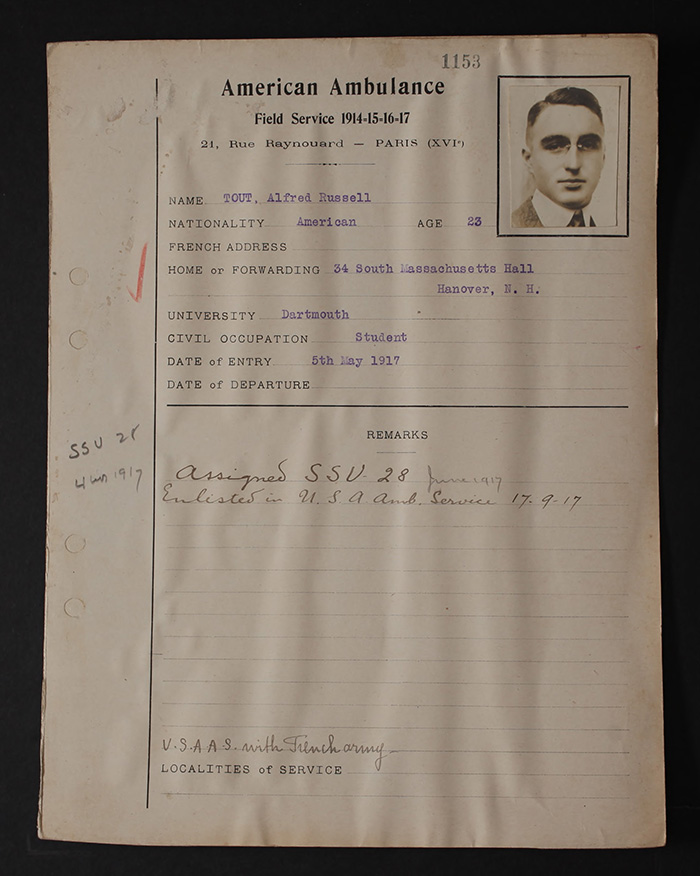 1153
American Ambulance
Field Service 1914-15-16-17
21, Rue Raynouard — PARIS (XVIe)
NAME TOUT, Alfred Russell
NATIONALITY American AGE 23
FRENCH ADDRESS
HOME or FORWARDING 34 South Massachusetts Hall
Hanover, N. H.
UNIVERSITY Dartmouth
CIVIL OCCUPATION Student
DATE of ENTRY 5th May 1917
DATE of DEPARTURE
REMARKS
SSU 28
4 1917
Assigned SSU 28 June 1917
Enlisted in U. S. A Amb. Service 17-9-17
U.S.A.A.S. with French army
LOCALITIES of SERVICE